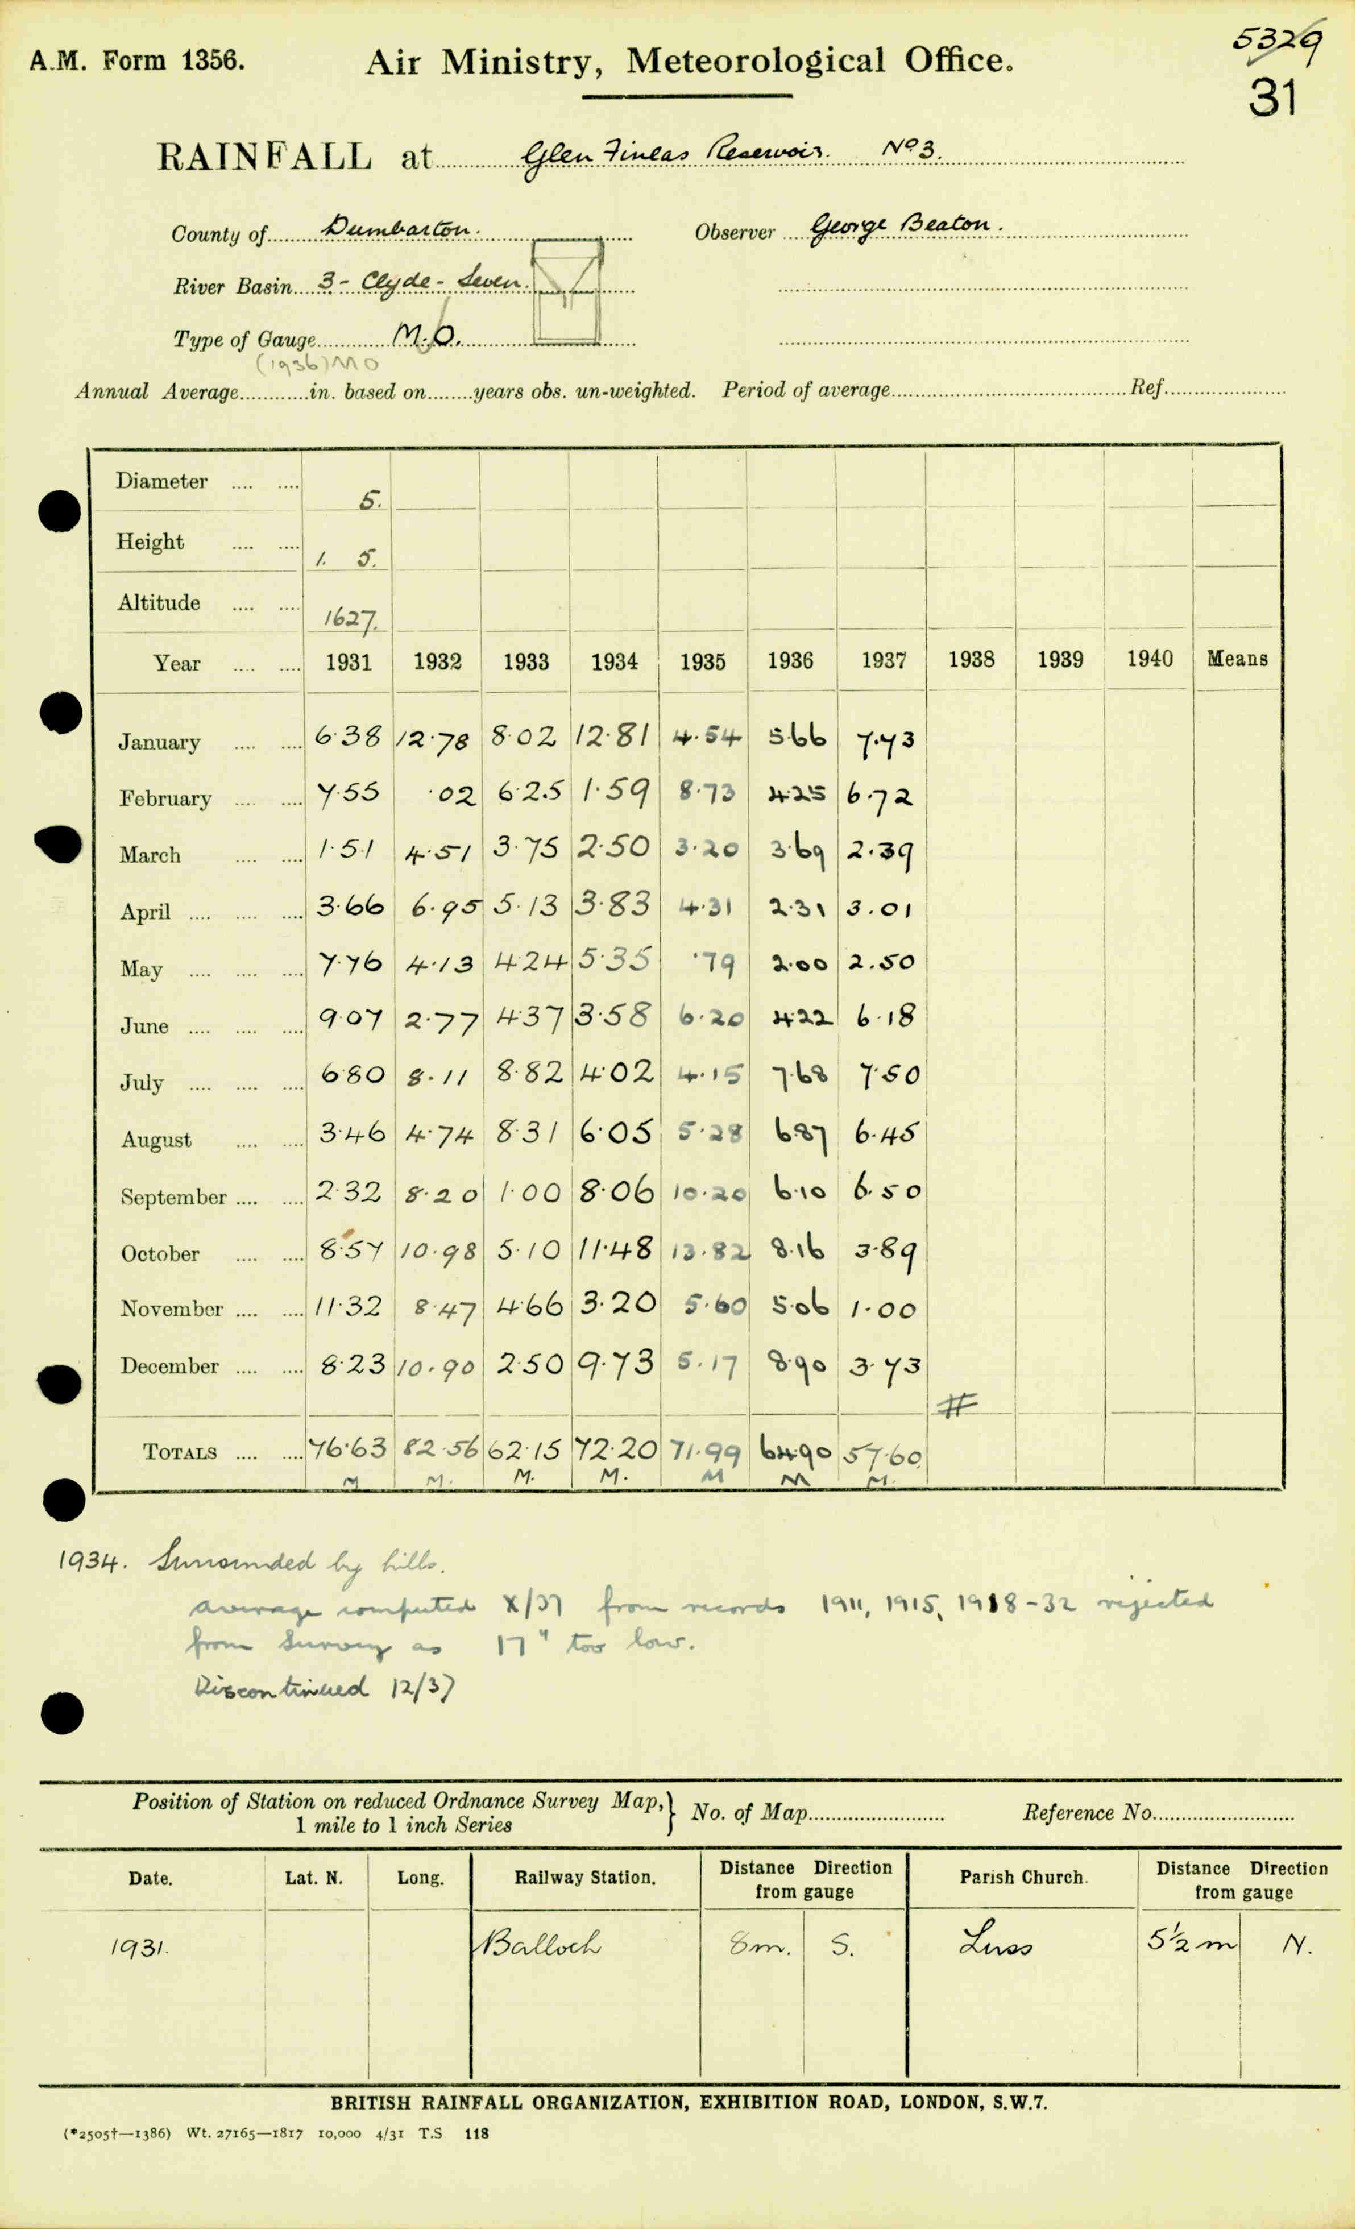 5329
A.M. Form 1356. Air Ministry, Meteorological Office.
31
RAINFALL at Glen Finlas Reservoir. No 3.
County of Dumbarton. Observer George Beaton.
River Basin 3 - Clyde - Leven.
Type of Gauge M.O.
(1936) MO
Annual Average in. based on years obs. un-weighted. Period of average Ref.
Diameter 5.
Height 1. 5.
Altitude 1627.
Year 1931 1932 1933 1934 1935 1936 1937 1938 1939 1940 Means
January 6.38 12.78 8.02 12.81 4.54 5.66 7.73
February 7.55 .02 6.25 1.59 8.73 4.25 6.72
March 1.51 4.51 3.75 2.50 3.20 3.69 2.39
April 3.66 6.95 5.13 3.83 4.31 2.31 3.01
May 7.76 4.13 4.24 5.35 .79 2.00 2.50
June 9.07 2.77 4.37 3.58 6.20 4.22 6.18
July 6.80 8.11 8.82 4.02 4.15 7.68 7.50
August 3.46 4.74 8.31 6.05 5.28 6.87 6.45
September 2.32 8.20 1.00 8.06 10.20 6.10 6.50
October 8.57 10.98 5.10 11.48 13.82 8.16 3.89
November 11.32 8.47 4.66 3.20 5.60 5.06 1.00
December 8.23 10.90 2.50 9.73 5.17 8.90 3.73
#
TOTALS 76.63 82.56 62.15 72.20 71.99 64.90 57.60
M M. M. M. M M M.
1934. Surrounded by hills.
average computed X/37 from records 1911, 1915, 1918-32 rejected
from Survey as 17" too low.
Discontinued 12/37
Position of Station on reduced Ordnance Survey Map, } No. of Map Reference No.
1 mile to 1 inch Series
Date. Lat. N. Long. Railway Station. Distance Direction from gauge Parish Church. Distance Direction from gauge
1931. Balloch 8m. S. Luss 5½ m N.
BRITISH RAINFALL ORGANIZATION, EXHIBITION ROAD, LONDON, S.W.7.
(*2505†—1386) Wt. 27165—1817 10,000 4/31 T.S 118